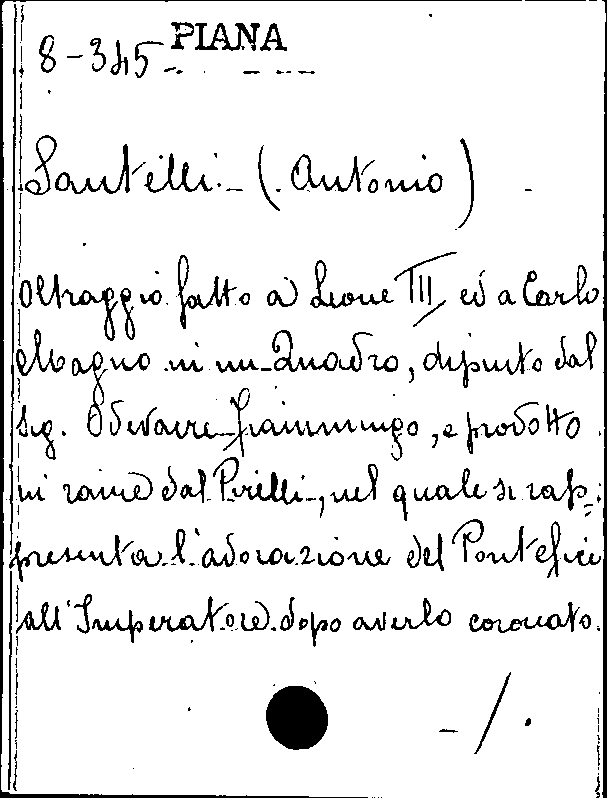 PIANA
8-345
Santelli - (Antonio)
Oltraggio fatto a Leone III ed a Carlo
Magno in un Quadro, dipinto dal
Sig. Odevaere Fiammingo, e prodotto
in rame dal Pirelli, nel quale si rap=
presenta l'adorazione del Pontefice
all'Imperatore dopo averlo coronato.
-/.